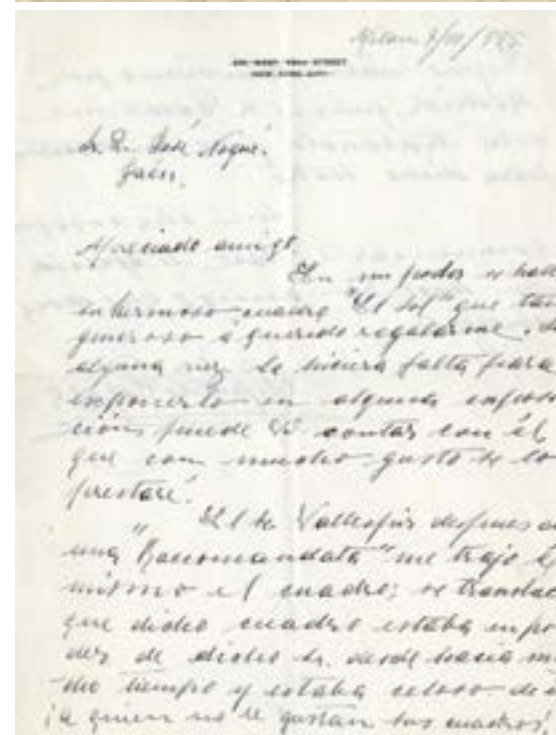 Milan
WEST STREET
NEW YORK CITY
Sr. D. José Nogué.
Jaén.
Apreciado amigo.
En mi poder se halla
su hermoso cuadro "El Sol" que tan
generoso á querido regalarme, si
alguna vez le hiciera falta para
exponerlo en alguna exposi
ción puede V. contar con él
que con mucho gusto se lo
prestaré.
El Sr Vallespir despues de
una "Raccomandata" me trajo el
mismo el cuadro; se
que dicho cuadro estaba en po
der de dicho Sr. desde hacia mu
cho tiempo y estaba celoso de
¡a quien no le gustan tus cuadros!